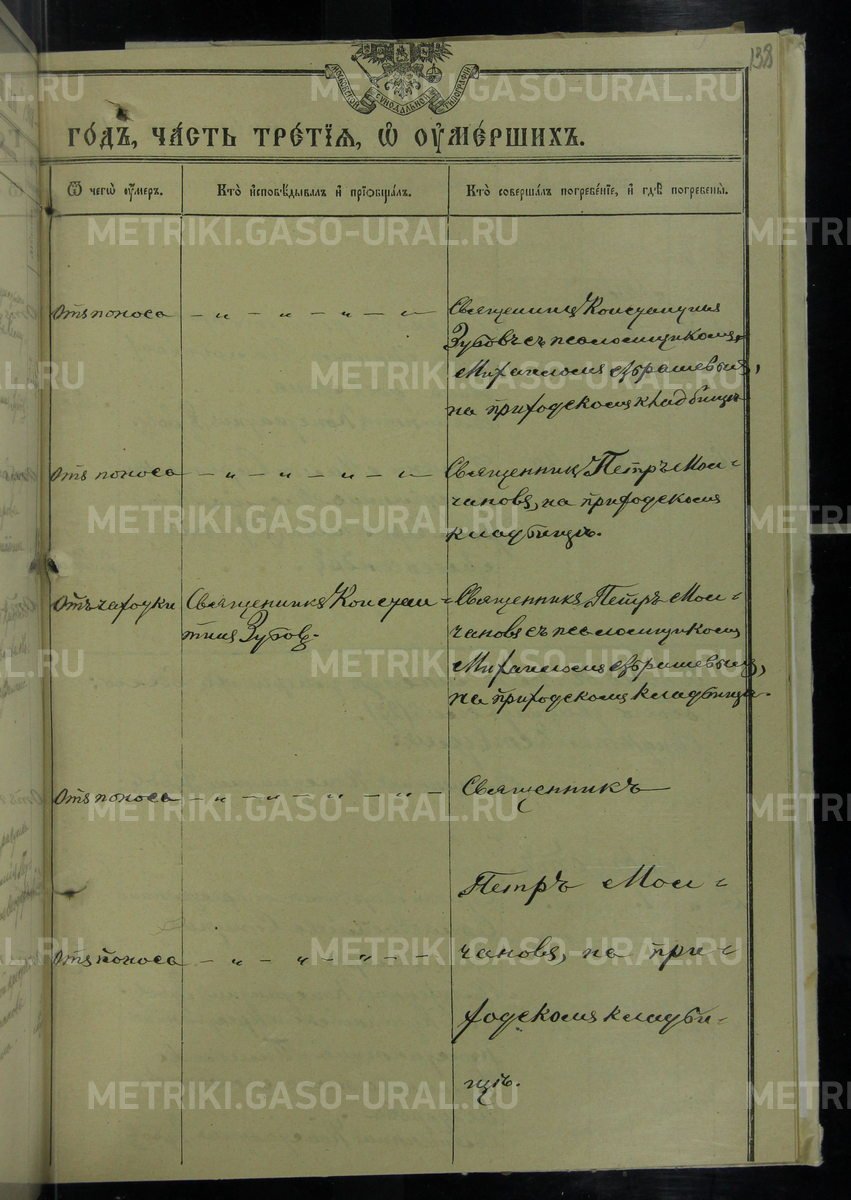 138
МОСКОВСКОЙ СѴНОДАЛЬНОЙ ТИПОГРАФІИ
го́дъ, ча́сть тре́тїѧ, ѡ҆ ᲂу҆ме́ршихъ.
Ѿ чегѡ̀ ᲂу҆́меръ.
Кто̀ и҆сповѣ́дывалъ и҆ прїѡбща́лъ.
Кто̀ соверша́лъ погребе́нїе, и҆ гдѣ̀ погребены̀.
Отъ поноса — „ — „ — „ — „ — Священникъ Константинъ
Зубовъ съ псаломщикомъ
Михаиломъ
на приходскомъ кладбищѣ
Отъ поноса — „ — „ — „ — „ — Священникъ Петръ Мол-
чановъ, на приходскомъ
кладбищѣ.
Отъ чахотки Священникъ Констан- Священникъ Петръ Мол-
тинъ Зубовъ. чановъ съ псаломщикомъ
Михаиломъ
на приходскомъ кладбищѣ.
Отъ поноса — „ — „ — „ — „ — Священникъ
Петръ Мол-
Отъ поноса — „ — „ — „ — „ — — чановъ, на при-
ходскомъ кладби-
щѣ.
METRIKI.GASO-URAL.RU